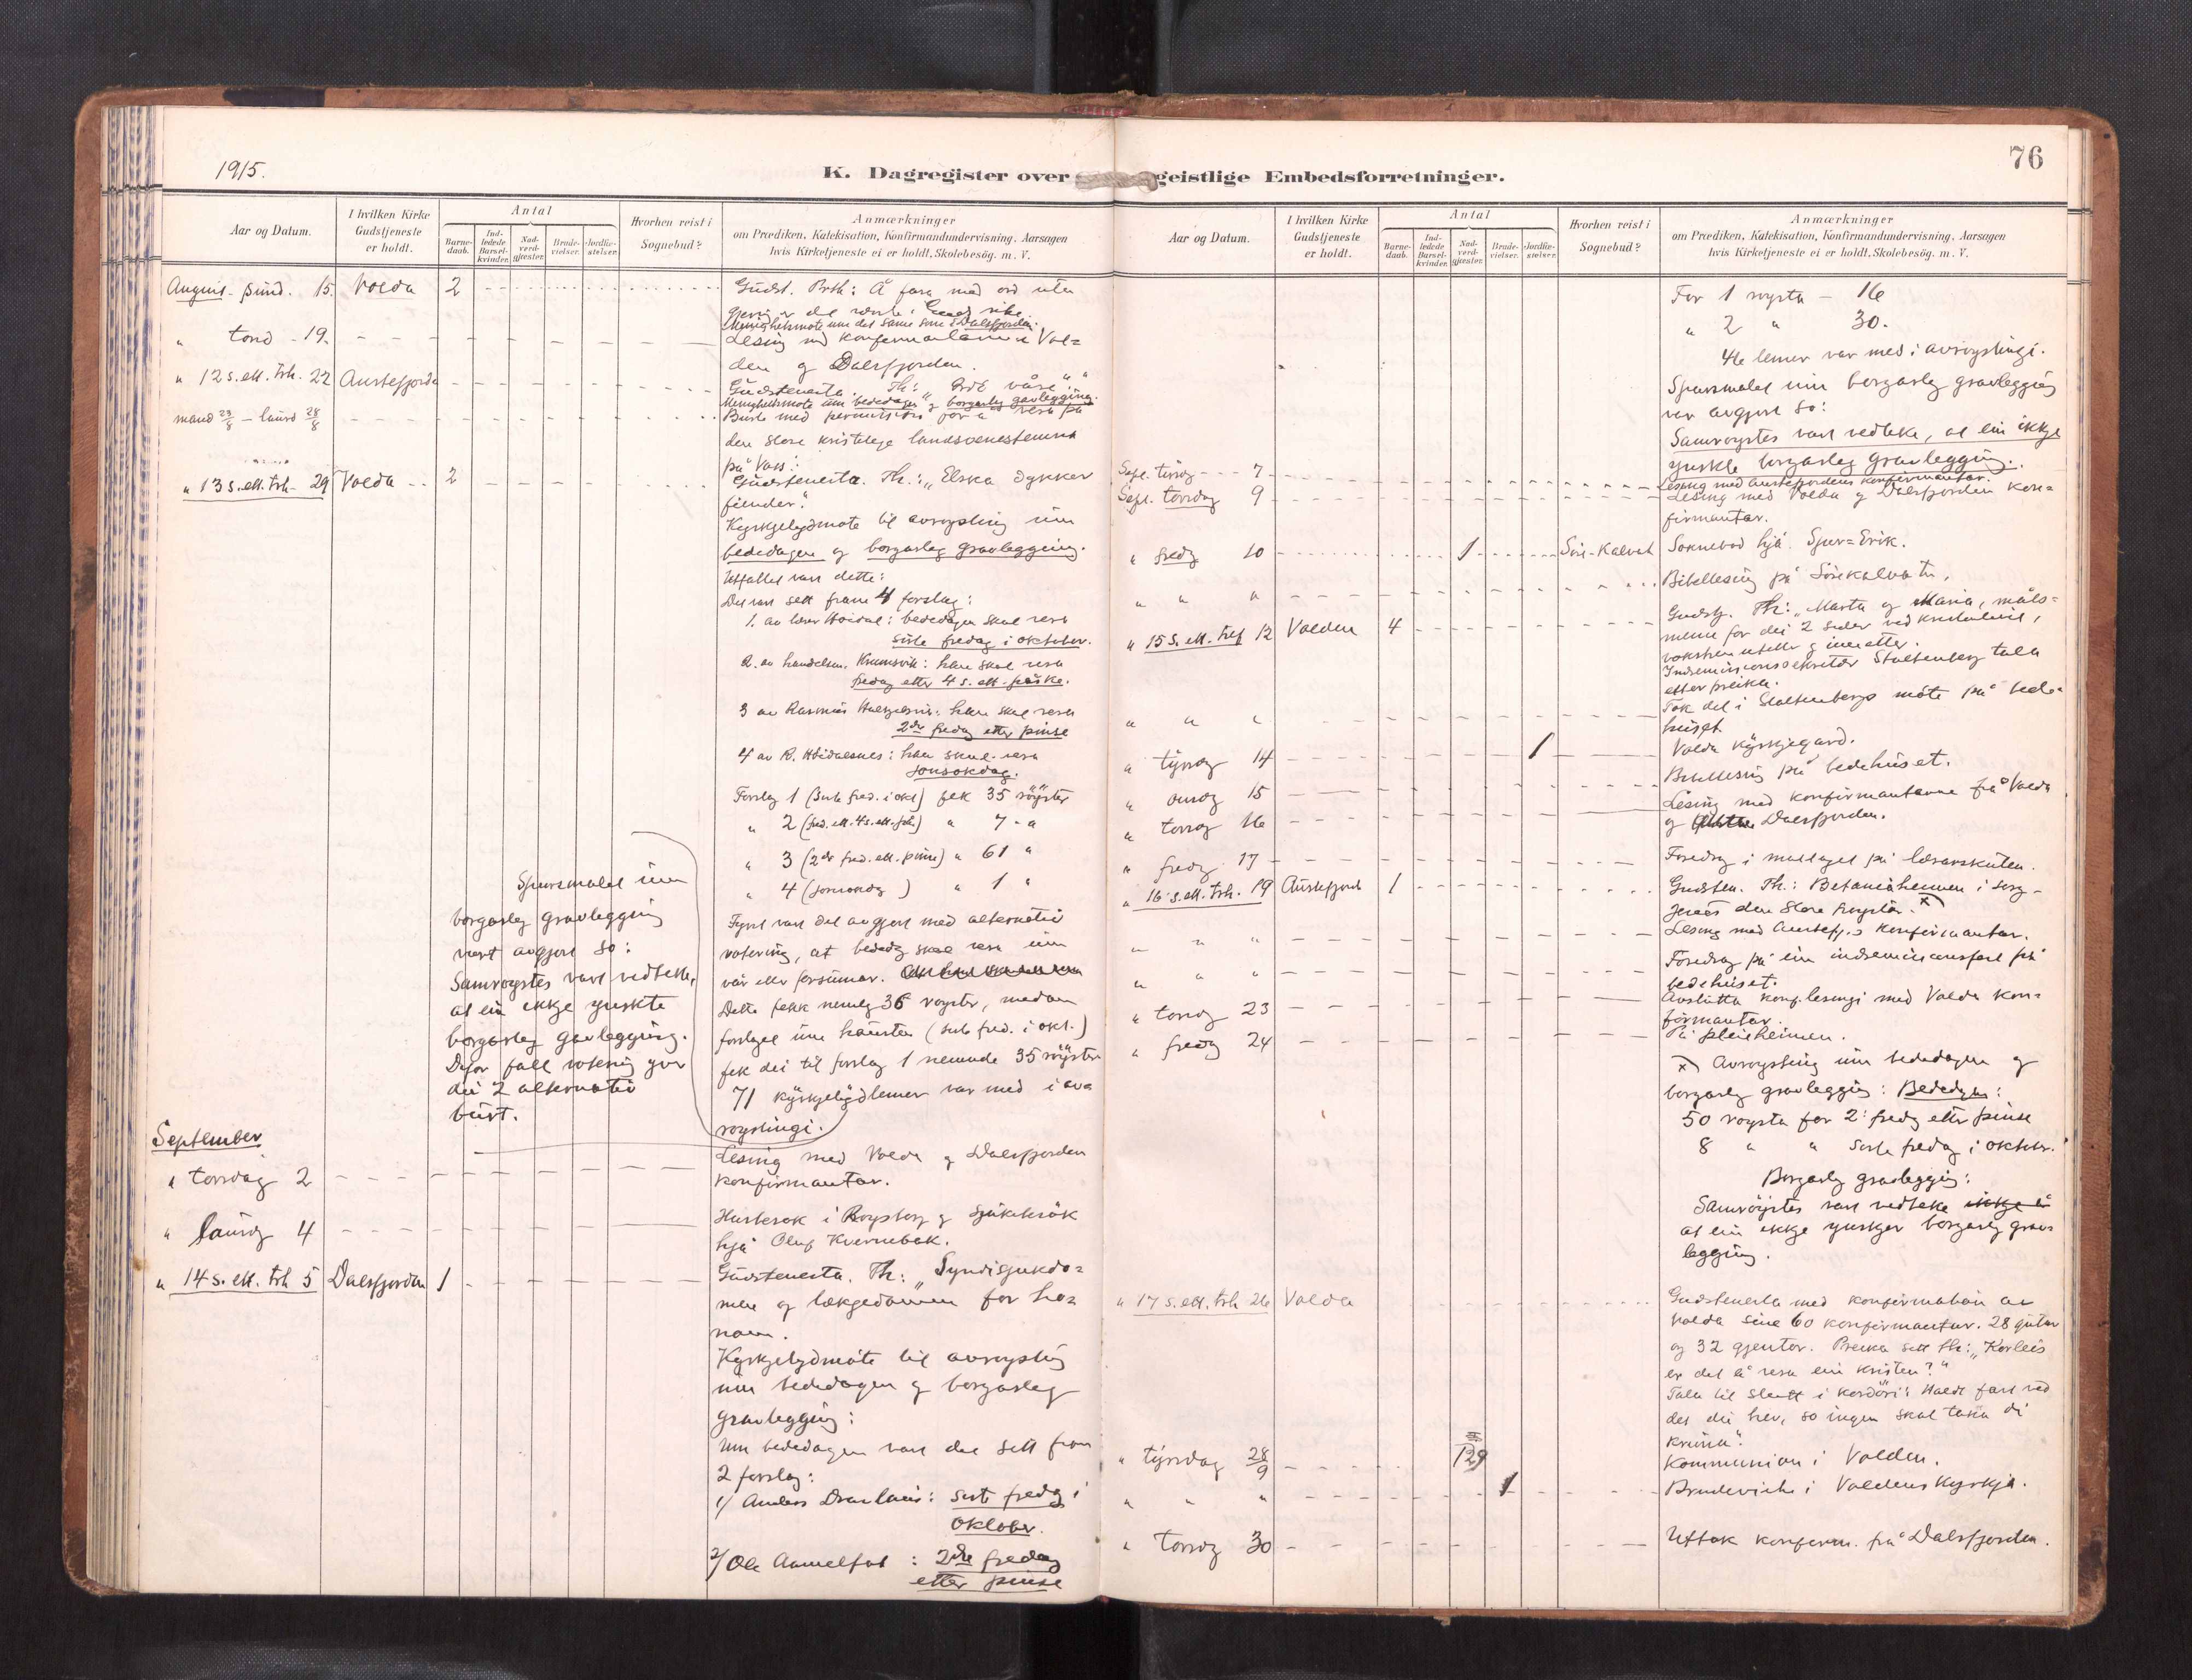 1915.
K. Dagregister over geistlige Embedsforretninger.
76
Aar og Datum.
I hvilken Kirke Gudstjeneste er holdt.
Antal
Barne-daab.
Ind-ledede Barsel-kvinder.
Nad-verd-gjæster.
Brude-vielser.
Jordfæ-stelser.
Hvorhen reist i Sognebud?
Anmærkninger
om Prædiken, Katekisation, Konfirmandundervisning. Aarsagen
hvis Kirketjeneste ei er holdt, Skolebesög. m. V.
August sund. 15. Volda 2 Gudst. : Å fara med ord uta
gjerni er det
Menighetsmøte um det same som i Dalsfjorden.
" torsd. 19. Lesing med konfirmantarne i Vol=
den og Dalsfjorden.
" 12 s. ett. trh. 22 Austefjorden Gudstenesta. Th:
Menighetsmote um bededagen og borgarleg gravlegging.
mand 23/8 – laurd 28/8 Burte med permission for å vera på
den store kristelege landsvenestemna
på Voss.
" 13 s. ett. trh. 29 Volda 2 Gudstenesta. Th.: "Elska dykker
fiendar."
Kyrkjelydmøte til avrøysting um
bededagen og borgarleg gravlegging.
Utfallet vart dette:
Det vart sett fram 4 forslag:
1. av lærar Høidal: bededagen skal vera
siste fredag i oktober.
2. av handelsm. Krumsvik: han skal vera
fredag etter 4 s. ett. påske.
3 av Rasmus : han skal vera
2dre fredag etter pinse
4 av R. Høidalsnes: han skal vera
Jonsokdag.
Forslag 1 (siste fred. i okt) fek 35 røyster
" 2 (fred. ett. 4 s. ett. pske) " 7 "
" 3 (2dre fred. ett. pinse) " 61 "
" 4 (Jonsokdag) " 1 "
Fyrst vart det avgjort med alternativ
votering, at bededag skal vera um
vår eller forsumar.
Dette fekk nemleg 36 røyster, medan
forslaget um hausten (siste fred. i okt.)
fek dei til forslag 1 nemnde 35 røyster
71 kyrkjelydlemer var med i av=
røystingi.
Spursmalet um
borgarleg gravlegging
vart avgjort so:
Samrøystes vart vedteke,
at ein ikkje ynskte
borgarleg gravlegging.
Difor fall votering yver
dei 2 alternativ
burt.
September
" torsdag 2 Lesing med Volda og Dalsfjorden
konfirmantar.
" laurdag 4 Husbesøk i Røysberg og sjukebesøk
hjå Oluf Kvernebak.
" 14 s. ett. trh 5 Dalsfjorden 1 Gudstenesta. Th: "Syndisjukdo=
men og lækjedomen for he=
nom.
Kyrkjelydmøte til avrøysting
um bededagen og borgarleg
gravlegging:
Um bededagen vart det sett fram
2 forslag:
1/ Anders : siste fredag i
oktober.
2/ Ole Aamelfot : 2dre fredag
etter pinse
Aar og Datum.
I hvilken Kirke Gudstjeneste er holdt.
Antal
Barne-daab.
Ind-ledede Barsel-kvinder.
Nad-verd-gjæster.
Brude-vielser.
Jordfæ-stelser.
Hvorhen reist i Sognebud?
Anmærkninger
om Prædiken, Katekisation, Konfirmandundervisning. Aarsagen
hvis Kirketjeneste ei er holdt, Skolebesög. m. V.
For 1 røysta – 16
" 2 " 30.
46 lemer var med i avrøystingi.
Spursmalet um borgarleg gravlegging
var avgjort so:
Samrøystes vart vedteke, at ein ikkje
ynskte borgarleg gravlegging.
Sept. tirsdag 7 Lesing med Austefjordens konfirmantar.
Sept. torsdag 9 Lesing med Volda og Dalsfjorden kon=
firmantar.
" fredag 10 1 Søre-Kalvat Soknebod hjå Sjur=Erik.
" " " Bibellesing på Sørekalvatn.
" 15 S. ett. tref 12 Volden 4 Gudstj. Th: "Marta og Maria, måls=
menn for dei 2 sider ved kristenlivet,
voksteren utetter og innetter.
Indremissionssekretær Stoltenberg tala
etter preika.
" " " Tok del i Stoltenbergs møte på bede=
huset.
" tysdag 14 1 Volda kyrkjegard.
" onsdag 15 Bibellesing på bedehuset.
" torsdag 16 Lesing med konfirmantarne frå Volda
og Dalsfjorden.
" fredag 17 Foredrag i mållaget på lærarskulen.
" 16 s. ett. trh. 19 Austefjord 1 Gudsten. Th.: Betaniaheimen i sorg –
Jesus den store trøystar. x)
" " " Lesing med Austefj.s konfirmantar.
" " " Foredrag på ein indremissionsfest på
bedehuset.
" torsdag 23 Avslutta konf.lesingi med Volda kon=
firmantar.
" fredag 24 På pleieheimen.
x) Avrøysting um bededagen og
borgarleg gravlegging: Bededagen:
50 røysta for 2. fredag etter pinse
8 " " siste fredag i oktober.
Borgarleg gravlegging:
Samrøystes vart vedteke ikkje å
at ein ikkje ynskjer borgarleg grav=
legging.
" 17 s. ett. trh 26 Volda Gudstenesta med konfirmation av
Volda sine 60 konfirmantar. 28 gutar
og 32 gjentor. Preika sett th: "Korleis
er det å vera ein kristen?"
Tala til slutt i kordøri: Hald fast ved
det du hev, so ingen skal taka di
kruna".
" tysdag 28/9 129 Kommunion i Volden.
" " " 1 Brudevielse i Voldens kyrkja.
" torsdag 30 Uttok konfirm. frå Dalsfjorden.